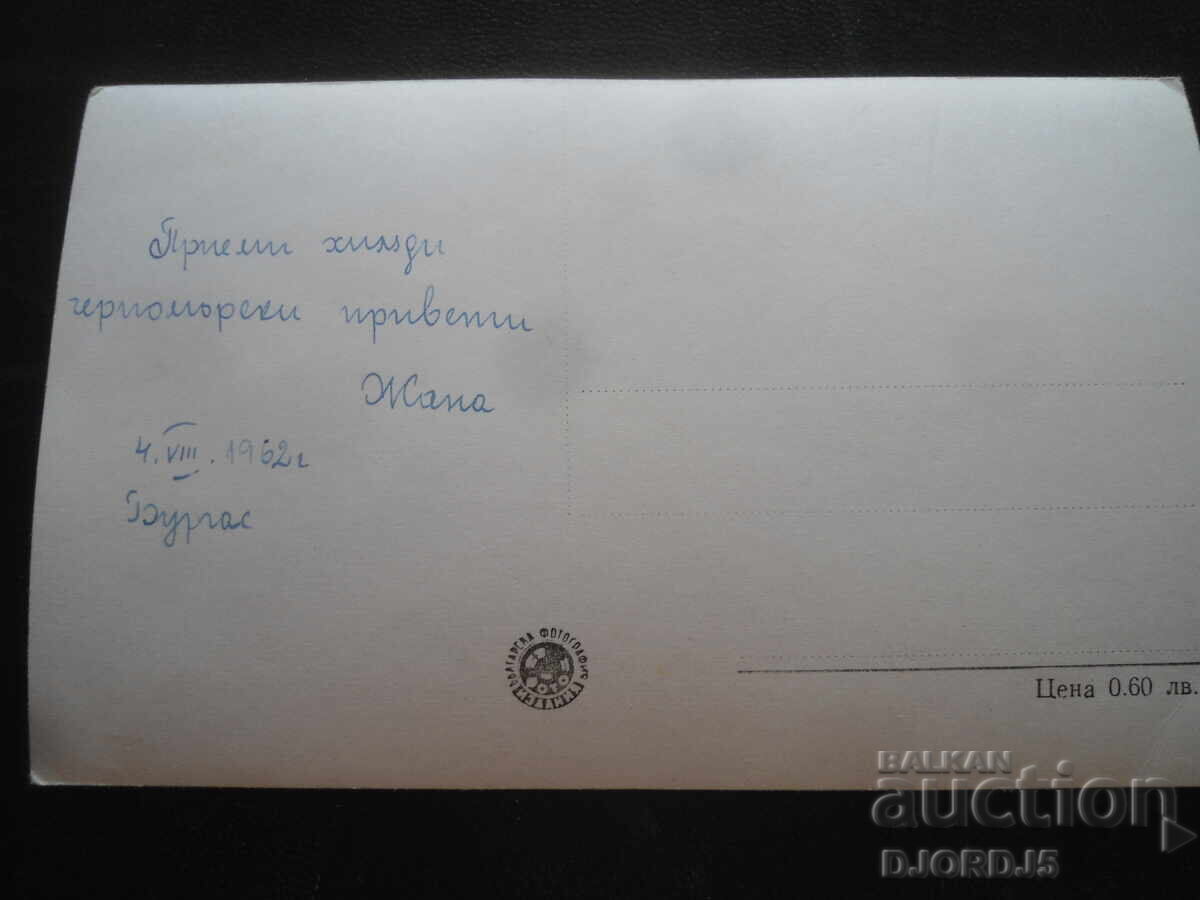 Приеми хиляди
черноморски привети
Жана
4.VIII.1962г
Бургас
БЪЛГАРСКА ФОТОГРАФИЯ
ФОТО
ИЗДАНИЯ
Цена 0.60 лв.
BALKAN
auction
DJORDJ5